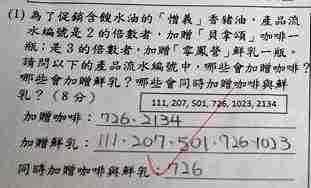 (1) 為了促銷含餿水油的「憎義」香豬油，產品流
水編號是 2 的倍數者，加贈「貝拿頌」咖啡一
瓶；是 3 的倍數者，加贈「零鳳醬」鮮乳一瓶。
請問以下的產品流水編號中，哪些會加贈咖啡？
哪些會加贈鮮乳？哪些會同時加贈咖啡與鮮
乳？（8 分）
111, 207, 501, 726, 1023, 2134
加贈咖啡：726、2134
加贈鮮乳：111、207、501、726、1023
同時加贈咖啡與鮮乳：726